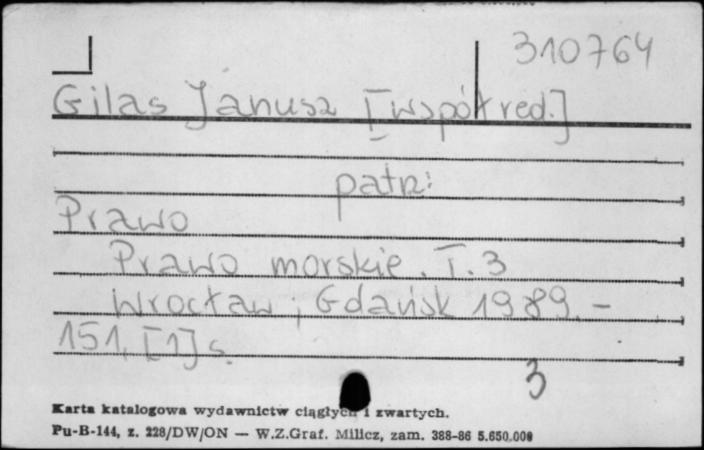 310764
Gilas Janusz [współred.]
patrz:
Prawo
Prawo morskie. T. 3
Wrocław ; Gdańsk 1989. -
151, [1] s.
3
Karta katalogowa wydawnictw ciągłych i zwartych.
Pu-B-144, z. 228/DW/ON — W.Z.Graf. Milicz, zam. 388-86 5.650.000